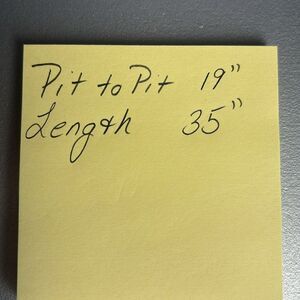 Pit to Pit 19"
Length 35"